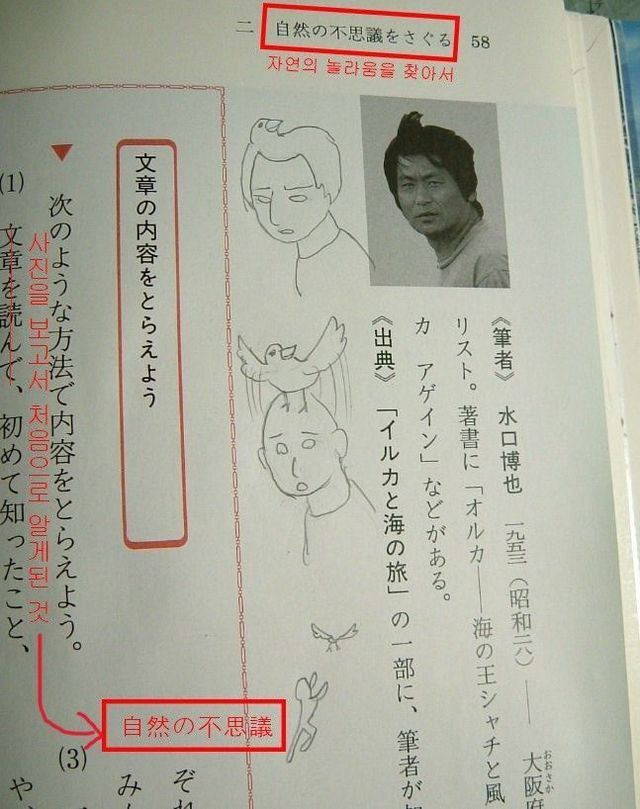 二 自然の不思議をさぐる 58
자연의 놀라움을 찾아서
《筆者》 水口博也 一九五三(昭和二八)── 大阪府
おおさか
リスト。著書に「オルカ──海の王シャチと風
カ アゲイン」などがある。
《出典》 「イルカと海の旅」の一部に、筆者が
文章の内容をとらえよう
▼ 次のような方法で内容をとらえよう。
(1) 文章を読んで、初めて知ったこと、
사진을 보고서 처음으로 알게된 것
自然の不思議
(3)
ぞれ
み
や